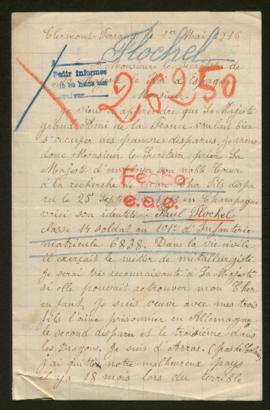 Clermont-Ferrand le 1er Mai 1916
Plochel
Monsieur le Secrétaire de
Sa Majesté le Roi d'Espagne
Pedir informes
26250
Monsieur
Je viens d'apprendre que Sa Majesté
grand Ami de la France voulait bien
s'occuper des pauvres disparus, je viens
donc Monsieur le Secrétaire prier Sa
Majesté d'employer son noble Cœur
à la recherche de mon cher fils dispa
ru le 25 Septembre en Champagne
Fecho
voici son identité: Paul Plochel
e.a.g.
classe 14 soldat au 101e d'Infanterie
matricule 6838. Dans la vie civile
il exerçait le métier de métallurgiste.
Je serai très reconnaissante à Sa Majesté
si elle pouvait retrouver mon cher
enfant, Je suis veuve avec mes trois
fils l'aîné prisonnier en Allemagne
le second disparu et le troisième dans
les Dragons. Je suis d'Arras (pas de Calais)
j'ai quitté notre malheureux pays
il y a 18 mois lors du terrible